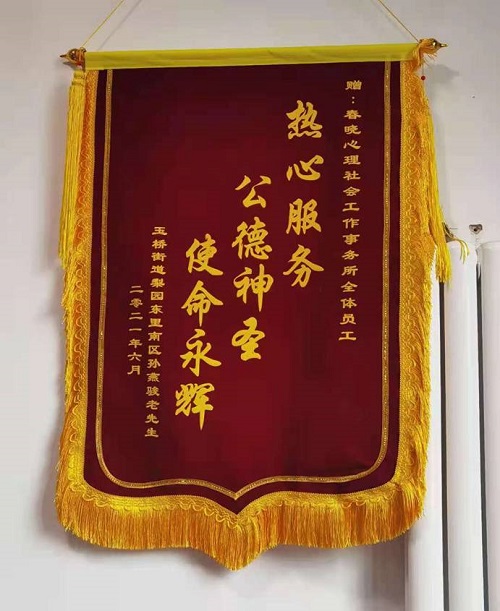 赠：春晓心理社会工作事务所全体员工
热心服务
公德神圣
使命永辉
玉桥街道梨园东里南区孙燕骏老先生
二零二一年六月